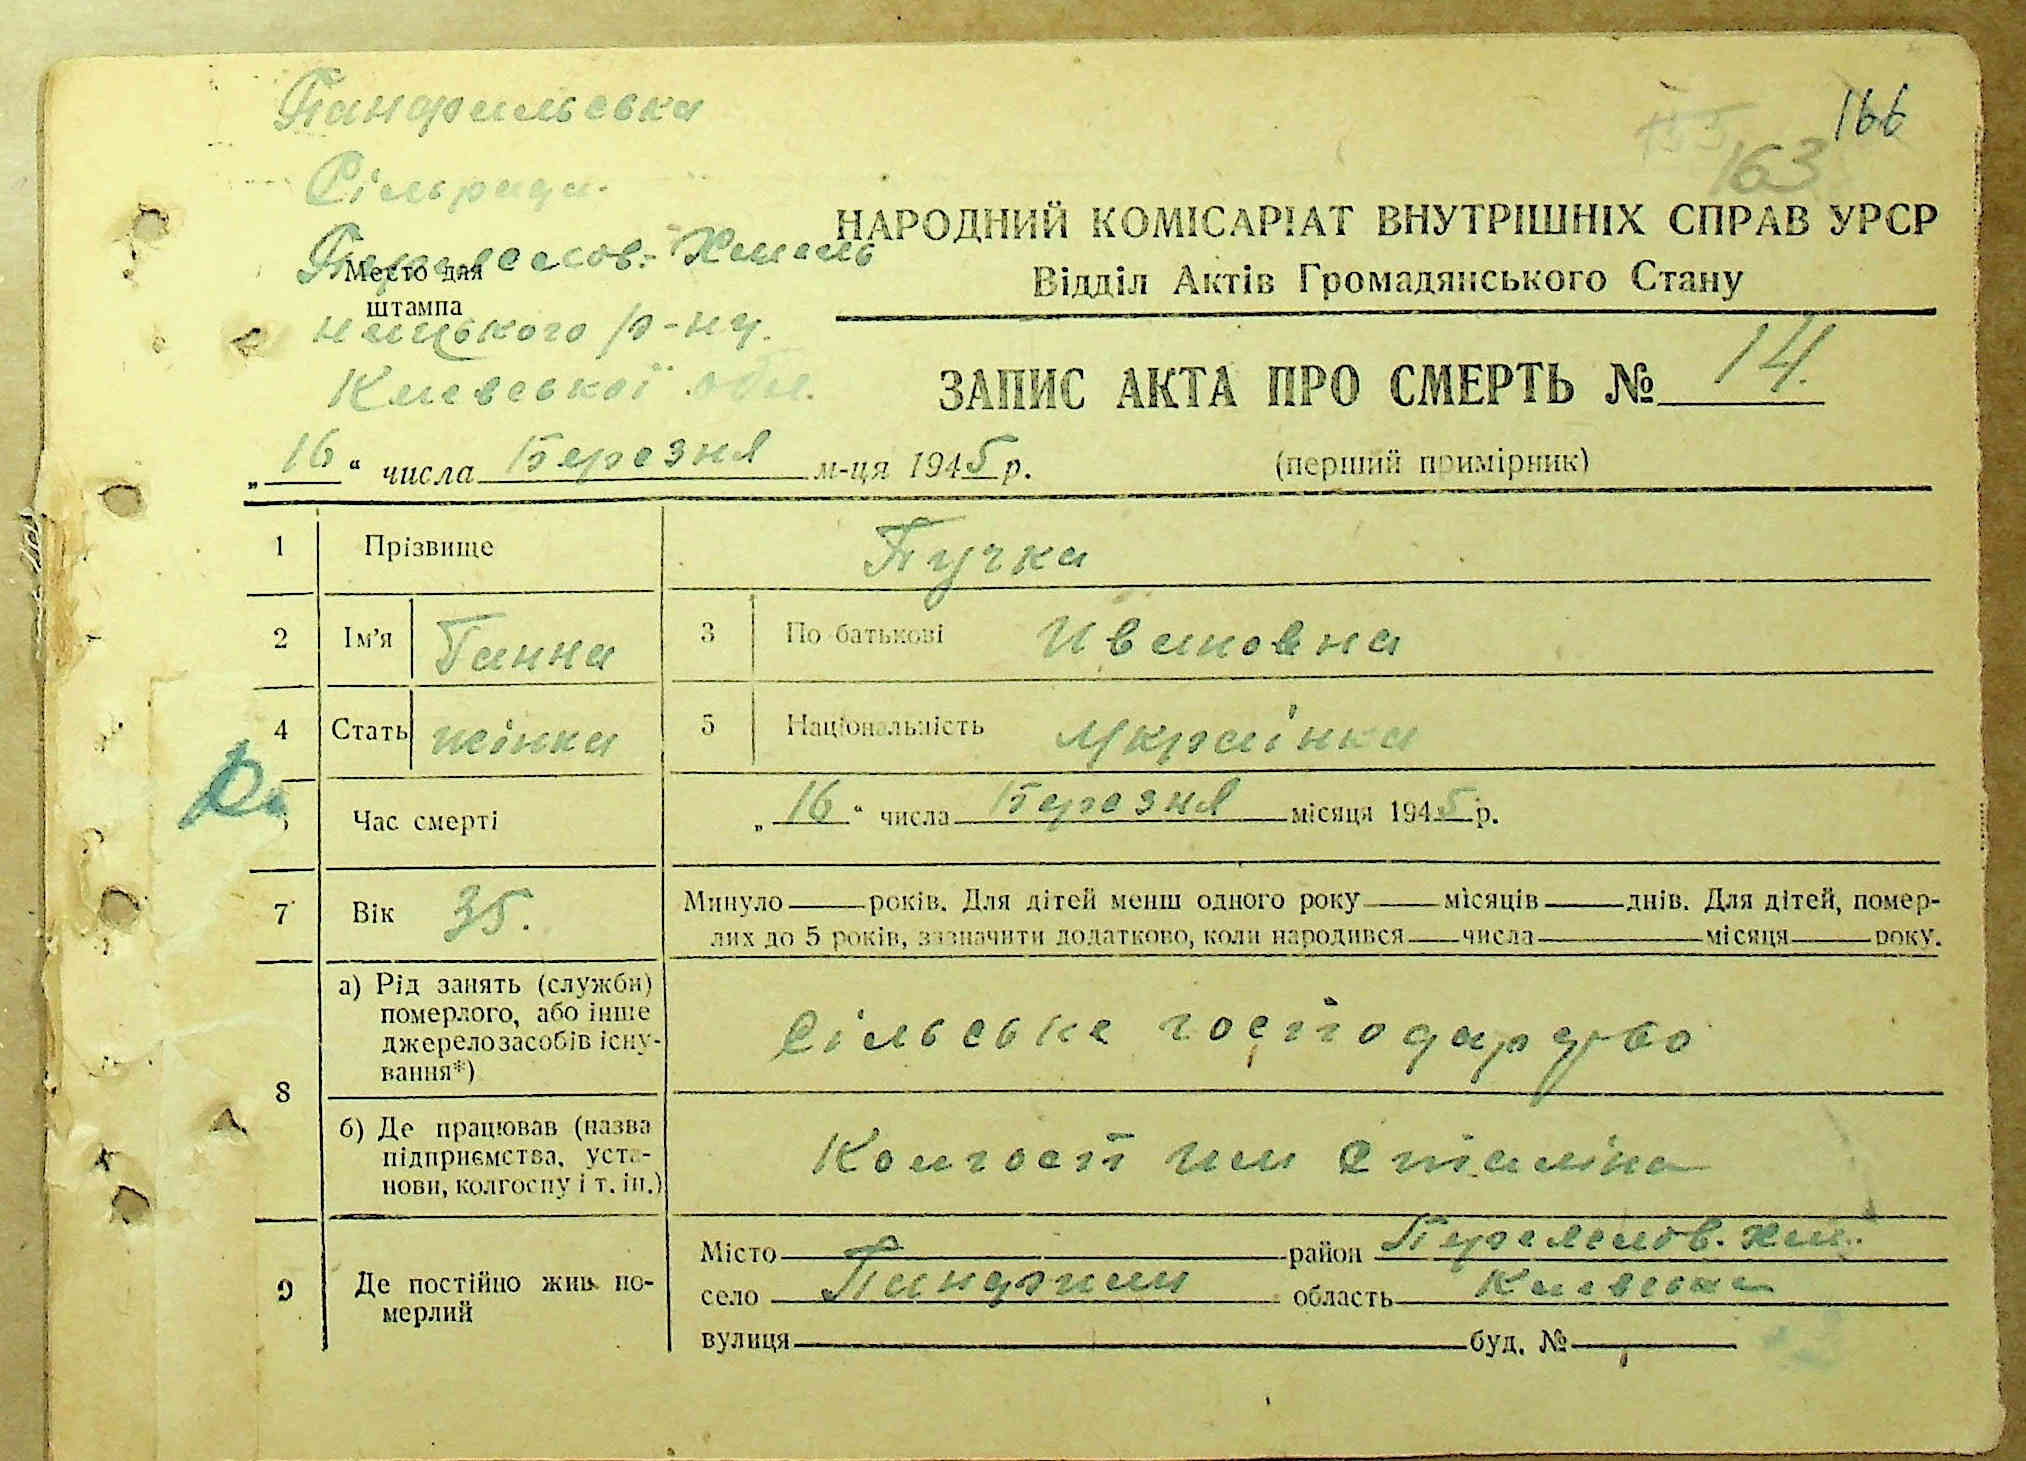 Панфильська
166
Сільрада.
163
НАРОДНИЙ КОМІСАРІАТ ВНУТРІШНІХ СПРАВ УРСР
Переяслов.-Хмель
Место для
Відділ Актів Громадянського Стану
штампа
ницького р-ну.
Киевської обл.
ЗАПИС АКТА ПРО СМЕРТЬ № 14.
„16“ числа Березня м-ця 1945 р.
(перший примірник)
1 Прізвище Пучка
2 Ім’я Ганна 3 По батькові Ивановна
4 Стать жінка 5 Національність Українка
Час смерті „16“ числа Березня місяця 1945 р.
7 Вік 35. Минуло — років. Для дітей менш одного року — місяців — днів. Для дітей, помер-
лих до 5 років, зазначити додатково, коли народився — числа — місяця — року.
а) Рід занять (служби)
померлого, або інше
джерело засобів існу-
вання*)
Сільське господарство
8
б) Де працював (назва
підприємства, уста-
нови, колгоспу і т. ін.)
Колгосп им Сталіна
9 Де постійно жив по-
мерлий
Місто — район Переяслов. Хм.
село Панфили область Киевська
вулиця — буд. № —